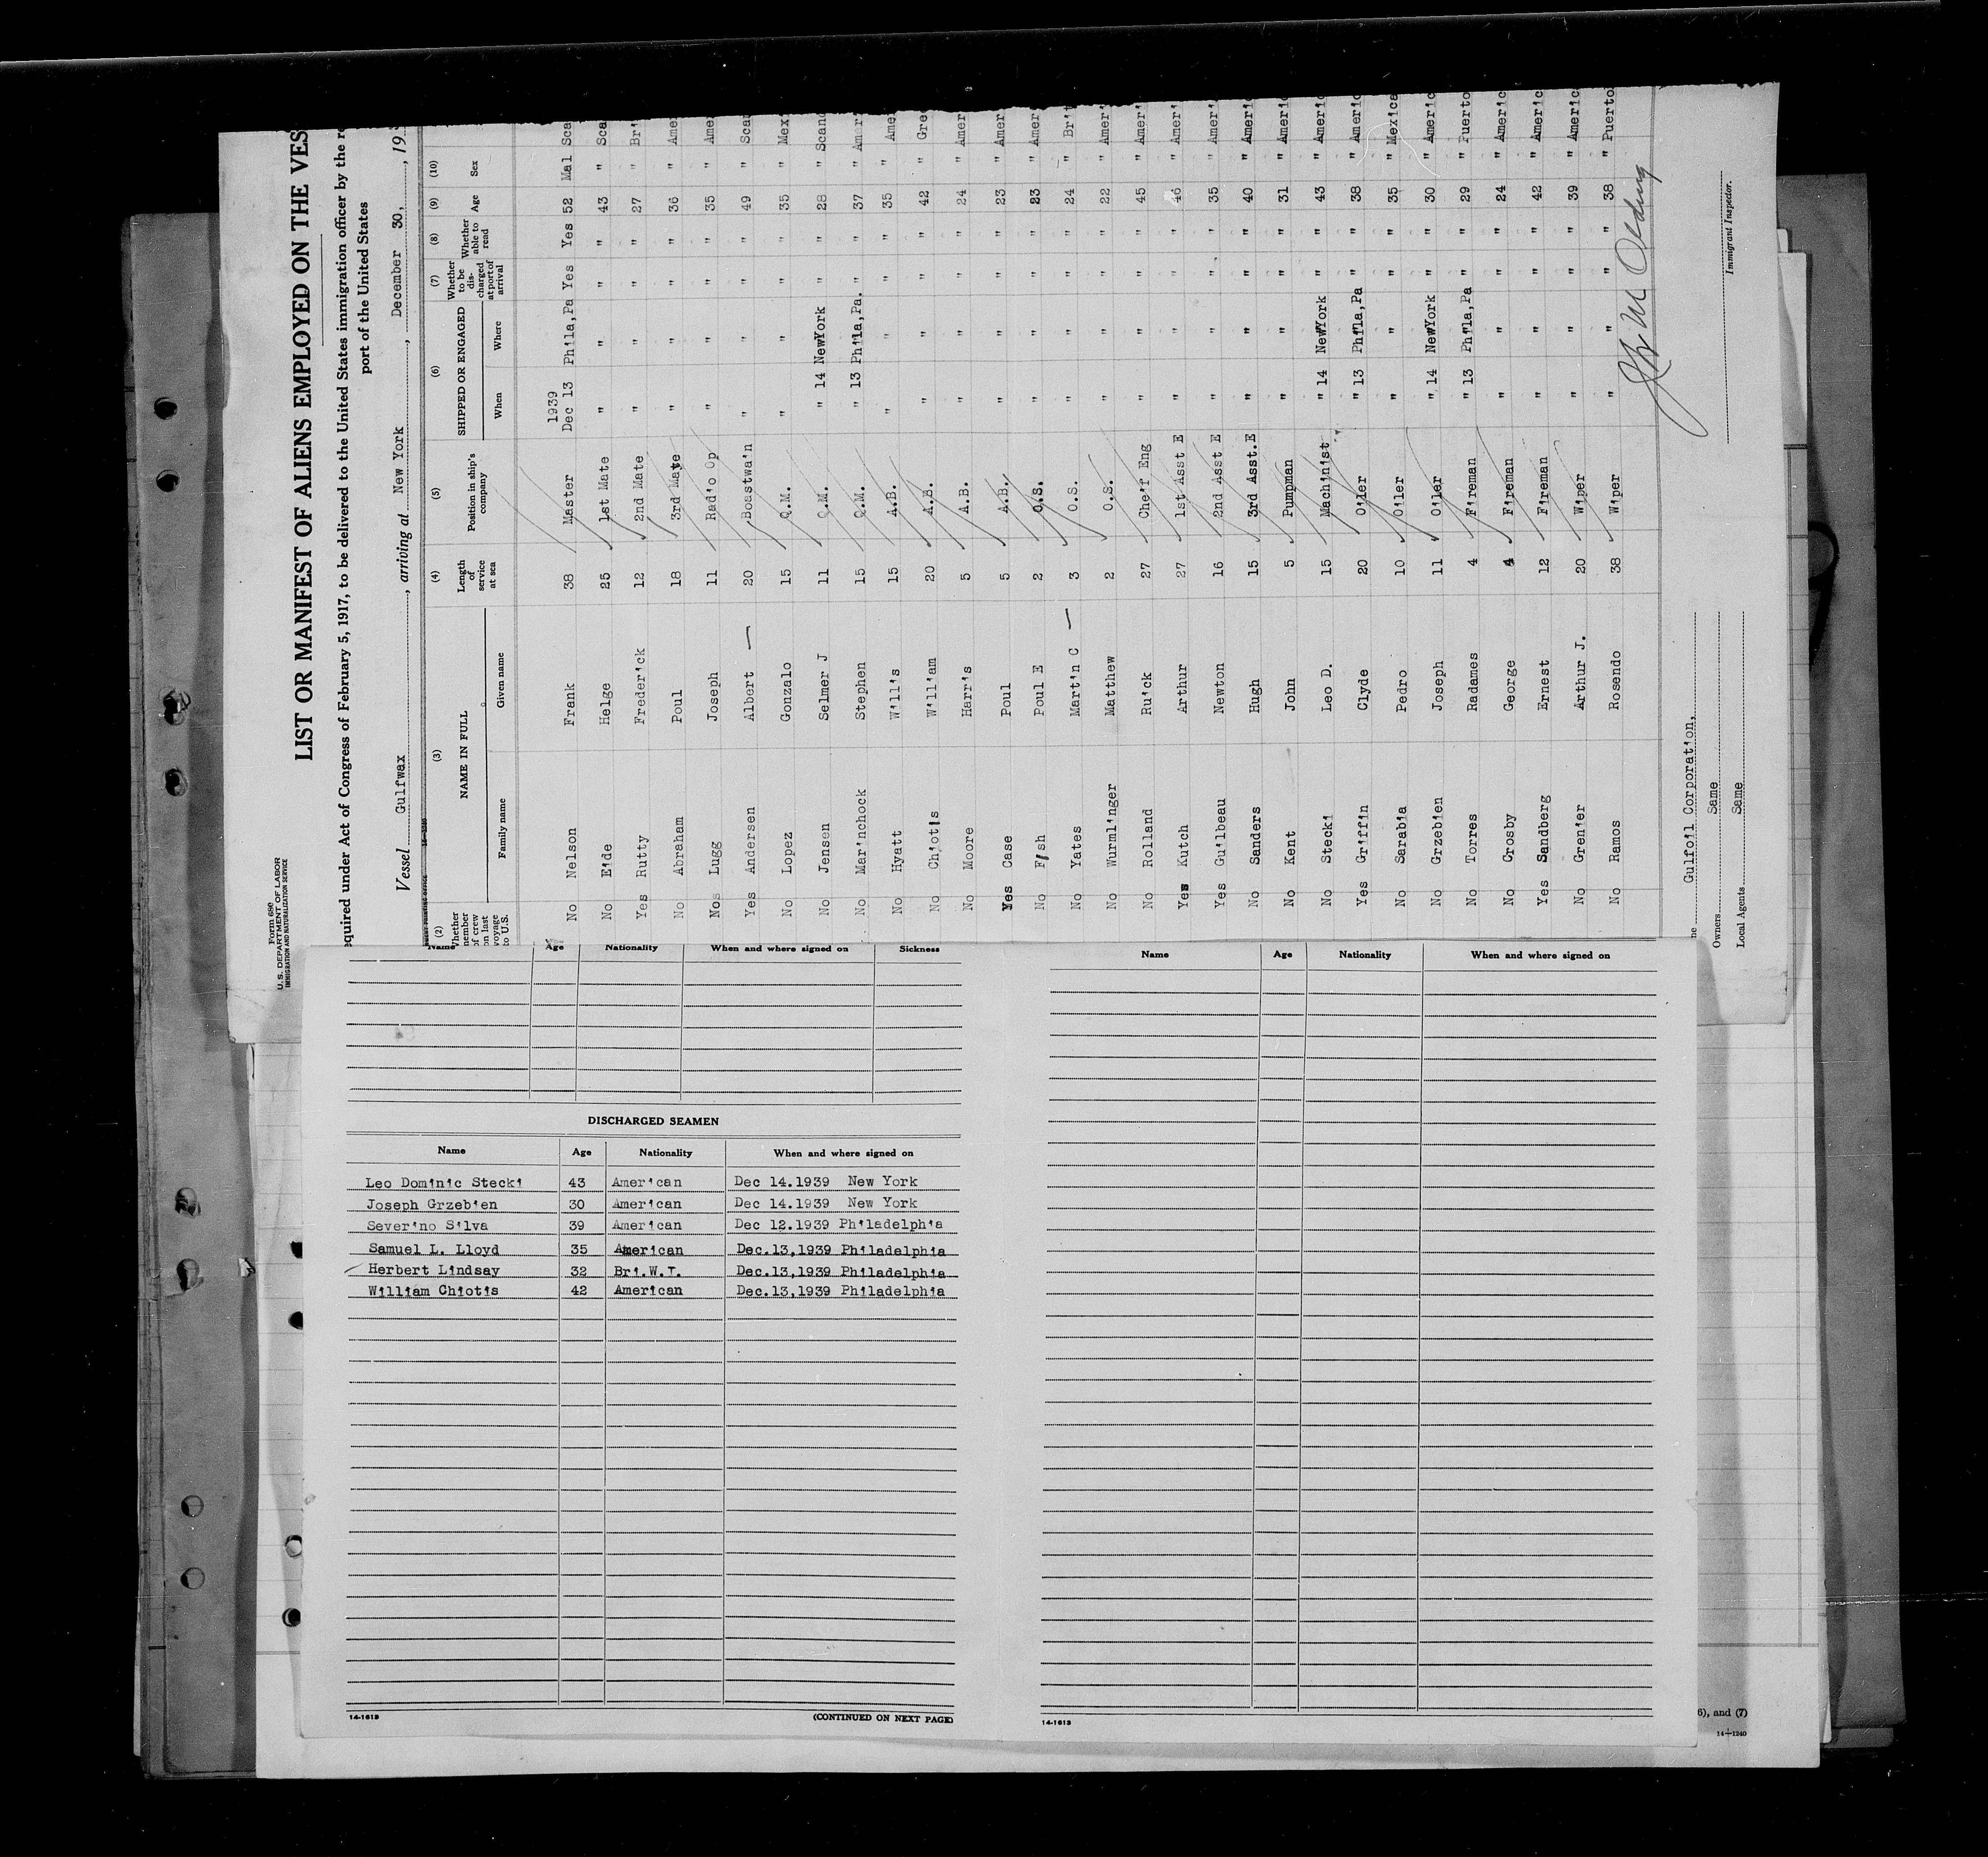 Form 680
U. S. DEPARTMENT OF LABOR
IMMIGRATION AND NATURALIZATION SERVICE
LIST OR MANIFEST OF ALIENS EMPLOYED ON THE VES
equired under Act of Congress of February 5, 1917, to be delivered to the United States immigration officer by the re
port of the United States
Vessel Gulfwax, arriving at New York, December 30, 19
(2) (3) (4) (5) (6) (7) (8) (9) (10)
Whether member of crew on last voyage to U.S. NAME IN FULL Family name Given name Length of service at sea Position in ship's company SHIPPED OR ENGAGED When Where Whether to be discharged at port of arrival Whether able to read Age Sex
1939
No Nelson Frank 38 Master Dec 13 Phila,Pa Yes Yes 52 Mal Sca
No Eide Helge 25 1st Mate " " " " 43 " Sca
Yes Rutty Frederick 12 2nd Mate " " " " 27 " Bri
No Abraham Poul 18 3rd Mate " " " " 36 " Ame
Nos Lugg Joseph 11 Radio Op " " " " 35 " Ame
Yes Andersen Albert — 20 Boastwain " " " " 49 " Sca
No Lopez Gonzalo 15 Q.M. " " " " 35 " Mex
No Jensen Selmer J 11 Q.M. " 14 NewYork " " 28 " Scand
No Marinchock Stephen 15 Q.M. " 13 Phila,Pa. " " 37 " Ameri
No Hyatt Willis 15 A.B. " " " " 35 " Amer
No Chiotis William 20 A.B. " " " " 42 " Gre
No Moore Harris 5 A.B. " " " " 24 " Amer
Yes Case Poul 5 A.B. " " " " 23 " Amer
No Fish Poul E 2 O.S. " " " " 23 " Amer
No Yates Martin C — 3 O.S. " " " " 24 " Brit
No Wurmlinger Matthew 2 O.S. " " " " 22 " Ameri
No Rolland Ruick 27 Cheif Eng " " " " 45 " Ameri
Yes Kutch Arthur 27 1st Asst E " " " " 46 " Ameri
Yes Guilbeau Newton 16 2nd Asst E " " " " 35 " Ameri
No Sanders Hugh 15 3rd Asst.E " " " " 40 " Ameri
No Kent John 5 Pumpman " " " " 31 " Americ
No Stecki Leo D. 15 Machinist " 14 NewYork " " 43 " Americ
Yes Griffin Clyde 20 Oiler " 13 Phila,Pa " " 38 " Americ
No Sarabia Pedro 10 Oiler " " " " 35 " Mexica
No Grzebien Joseph 11 Oiler " 14 NewYork " " 30 " Americ
No Torres Radames 4 Fireman " 13 Phila,Pa " " 29 " Puerto
No Crosby George 4 Fireman " " " " 24 " Americ
Yes Sandberg Ernest 12 Fireman " " " " 42 " Americ
No Grenier Arthur J. 20 Wiper " " " " 39 " Americ
No Ramos Rosendo 38 Wiper " " " " 38 " Puerto
Immigrant Inspector.
ne Gulfoil Corporation,
Owners Same
Local Agents Same
Name Age Nationality When and where signed on Sickness
DISCHARGED SEAMEN
Name Age Nationality When and where signed on
Leo Dominic Stecki 43 American Dec 14.1939 New York
Joseph Grzebien 30 American Dec 14.1939 New York
Severino Silva 39 American Dec 12.1939 Philadelphia
Samuel L. Lloyd 35 American Dec.13,1939 Philadelphia
Herbert Lindsay 32 Bri.W.I. Dec.13,1939 Philadelphia
William Chiotis 42 American Dec.13,1939 Philadelphia
14-1613 (CONTINUED ON NEXT PAGE)
Name Age Nationality When and where signed on
14-1613
6), and (7)
14-1240